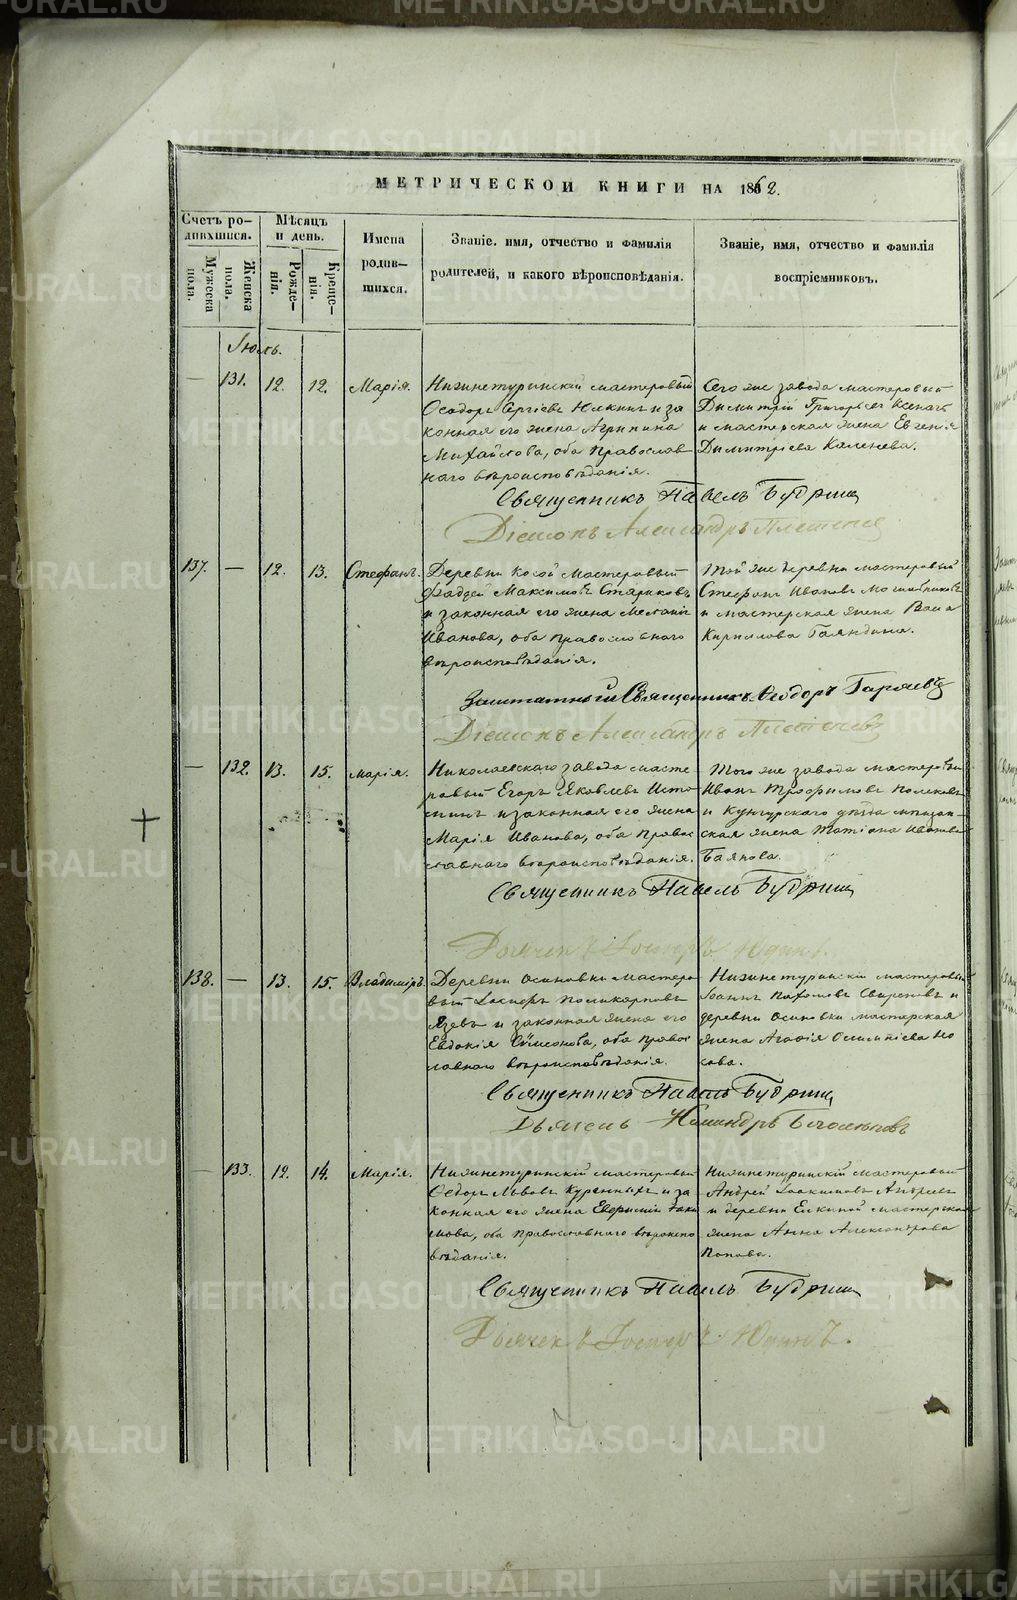 МЕТРИЧЕСКОЙ КНИГИ НА 1862.
Счетъ ро-
дившихся.
Мужеска пола.
Женска пола.
Мѣсяцъ
и день.
Рожде-
нія.
Креще-
нія.
Имена
родив-
шихся.
Званіе. имя, отчество и фамилія
родителей, и какого вѣроисповѣданія.
Званіе, имя, отчество и фамилія
воспріемниковъ.
Іюль.
— 131. 12. 12. Марія.
Нижнетуринскій мастеровый
Ѳеодоръ Сергіевъ и за
конная его жена Агрипина
Михайлова, оба православ-
наго вѣроисповѣданія.
Сего же завода мастеровый
Димитрій Григорьевъ
и мастерская жена Евгенія
Димитріева
Священникъ Павелъ
Діаконъ Александръ
137. — 12. 13. Стефанъ.
Деревни Косой мастеровый
Фаддей Максимовъ Стариковъ
и законная его жена Меланія
Иванова, оба православнаго
вѣроисповѣданія.
Той же деревни мастеровый
Стефанъ Ивановъ
и мастерская жена
Кириллова
Заштатный Священникъ Ѳеодоръ
Діаконъ Александръ
— 132. 13. 15. Марія.
Николаевскаго завода масте
ровый Егоръ Яковлевъ Исто
минъ и законная его жена
Марія Иванова, оба право
славнаго вѣроисповѣданія.
Того же завода мастеровый
Иванъ Трофимовъ
и Кунгурского уѣзда мѣщан-
ская жена Татіана Иванова
Баянова.
Священникъ Павелъ
Дьячекъ Іосифъ Юдинъ.
138. — 13. 15. Владиміръ.
Деревни Осиновки мастеро
вый Іосифъ Поликарповъ
Язевъ и законная жена его
Евдокія Симеонова, оба право
славнаго вѣроисповѣданія.
Нижнетуринскій мастеровый
Іоаннъ Пахомовъ и
деревни Осиновки мастерская
жена Агафія Но
сова.
Священникъ Павелъ
— 133. 12. 14. Марія.
Нижнетуринскій мастеровый
Ѳедоръ Львовъ Куренныхъ и за
конная его жена Іаки
мова, оба православнаго вѣроиспо
вѣданія.
Нижнетуринскій мастеровый
Андрей Іоакимовъ
и деревни Елкиной мастерская
жена Анна Александрова
Попова.
Священникъ Павелъ
Дьячекъ Іосифъ Юдинъ.
METRIKI.GASO-URAL.RU